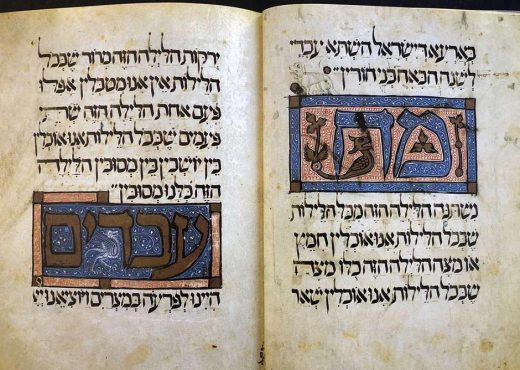 בארעא דישראל השתא עבדי
לשנה הבאה בני חורין
מה
נשתנה הלילה הזה מכל הלילות
שבכל הלילות אנו אוכלין חמץ
או מצה הלילה הזה כלו מצה
שבכל הלילות אנו אוכלין שאר
ירקות הלילה הזה מרור שבכל
הלילות אין אנו מטבלין אפלו
פעם אחת הלילה הזה שתי
פעמים שבכל הלילות אנו אוכלין
בין יושבין בין מסובין הלילה
הזה כלנו מסובין
עבדים
היינו לפרעה במצרים ויוציאנו ייי